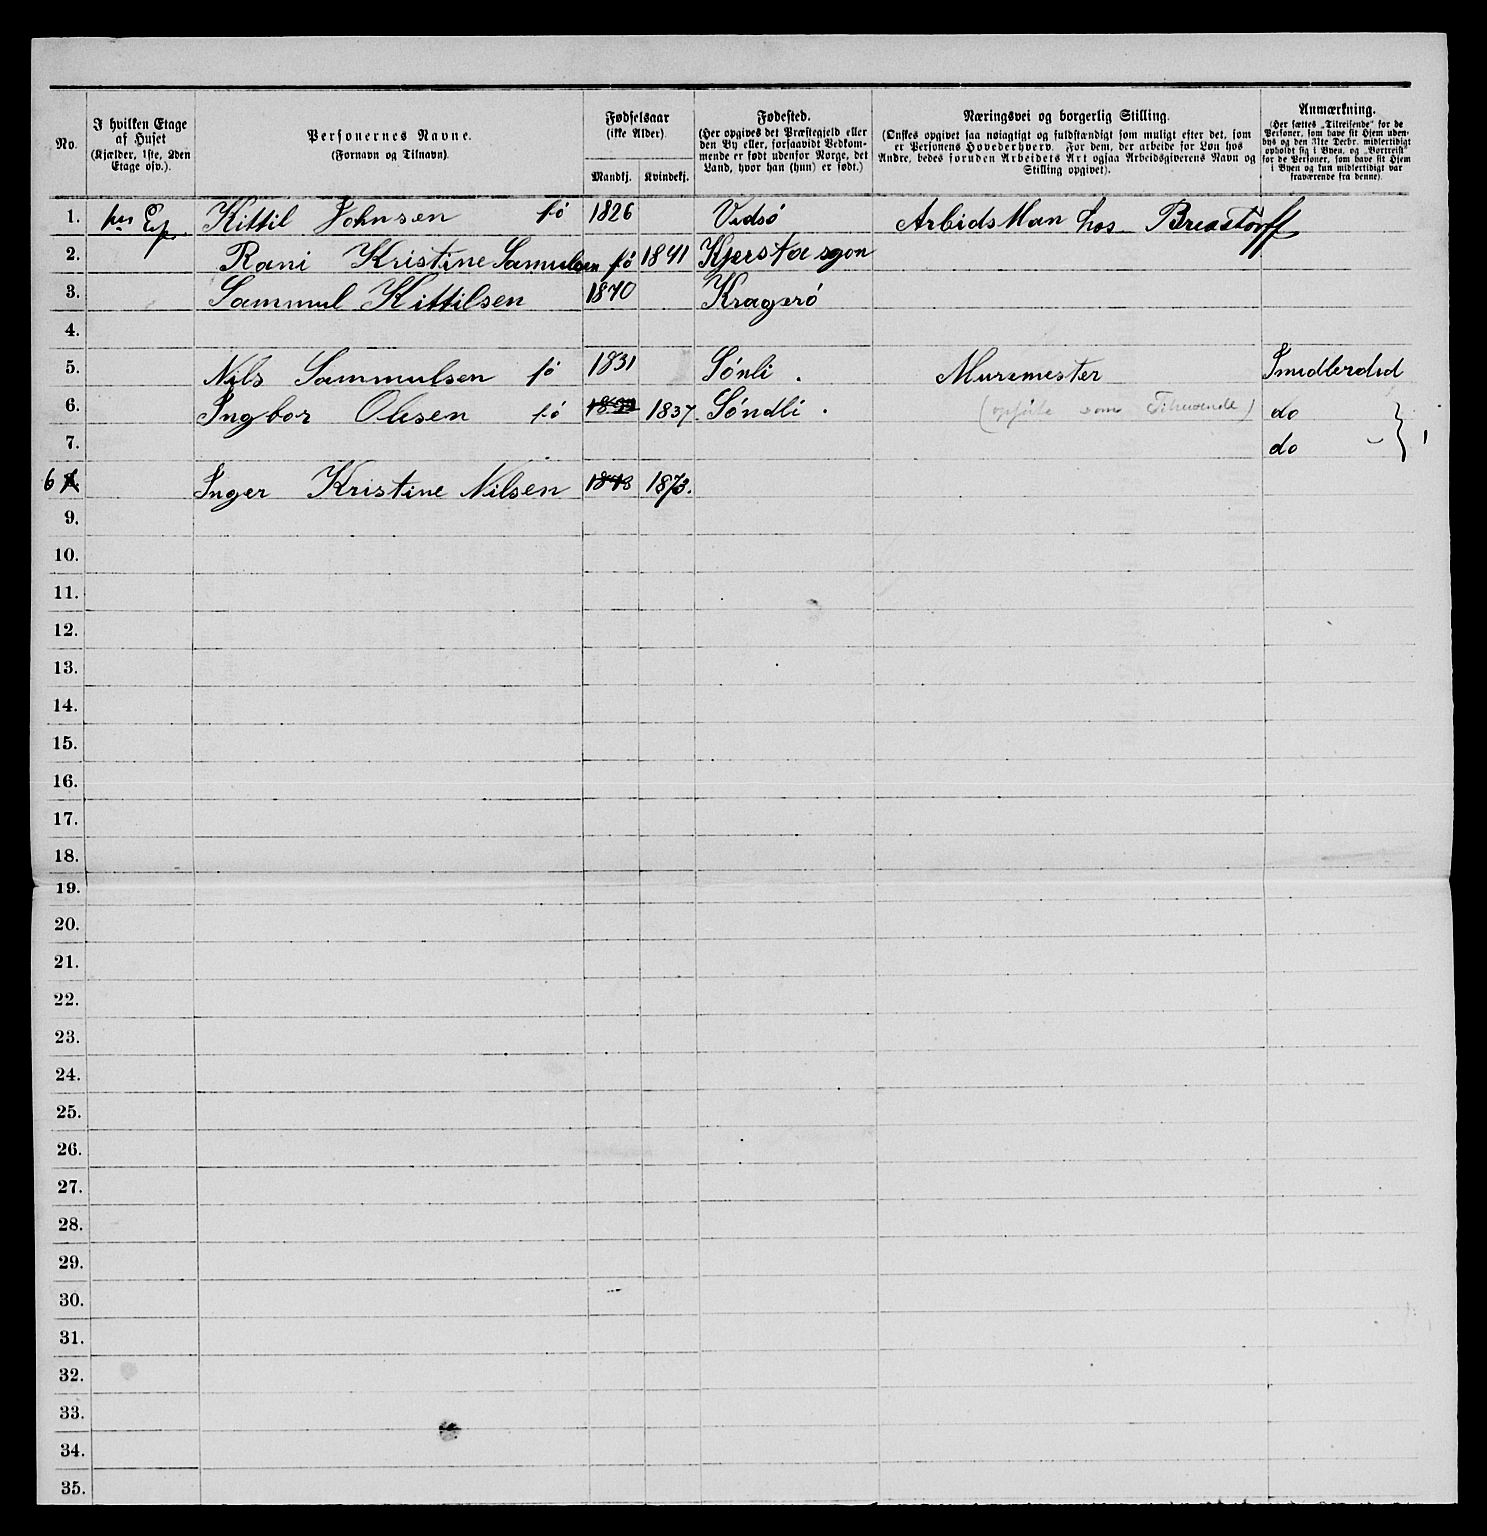 No.
I hvilken Etage af Huset (Kjælder, 1ste, 2den Etage osv.).
Personernes Navne. (Fornavn og Tilnavn).
Fødselsaar (ikke Alder).
Mandkj. Kvindekj.
Fødested. (Her opgives det Præstegjeld eller den By eller, forsaavidt Vedkommende er født udenfor Norge, det Land, hvor han (hun) er født.)
Næringsvei og borgerlig Stilling. (Ønskes opgivet saa nøiagtigt og fuldstændigt som muligt efter det, som er Personens Hovederhverv. For dem, der arbeide for Løn hos Andre, bedes foruden Arbeidets Art ogsaa Arbeidsgiverens Navn og Stilling opgivet).
Anmærkning. (Her sættes „Tilreisende“ for de Personer, som have sit Hjem udenbys og den 31te Decbr. midlertidigt opholdt sig i Byen, og „Bortreist“ for de Personer, som have sit Hjem i Byen og kun midlertidigt var fraværende fra denne).
1. Kittil Johnsen fö 1826 Vedsö ArbidsMan hos
2. Rani Kristine Samulsen fö 1841
3. Sammul Kittilsen 1870 Kragerö
4.
5. Nils Sammulsen fö 1831 Sönli . Muremester Imidlerdid
6. Ingbor Olesen fö 1837. Söndli . do
7. do
6 Inger Kristine Nilsen 1873.
9.
10.
11.
12.
13.
14.
15.
16.
17.
18.
19.
20.
21.
22.
23.
24.
25.
26.
27.
28.
29.
30.
31.
32.
33.
34.
35.